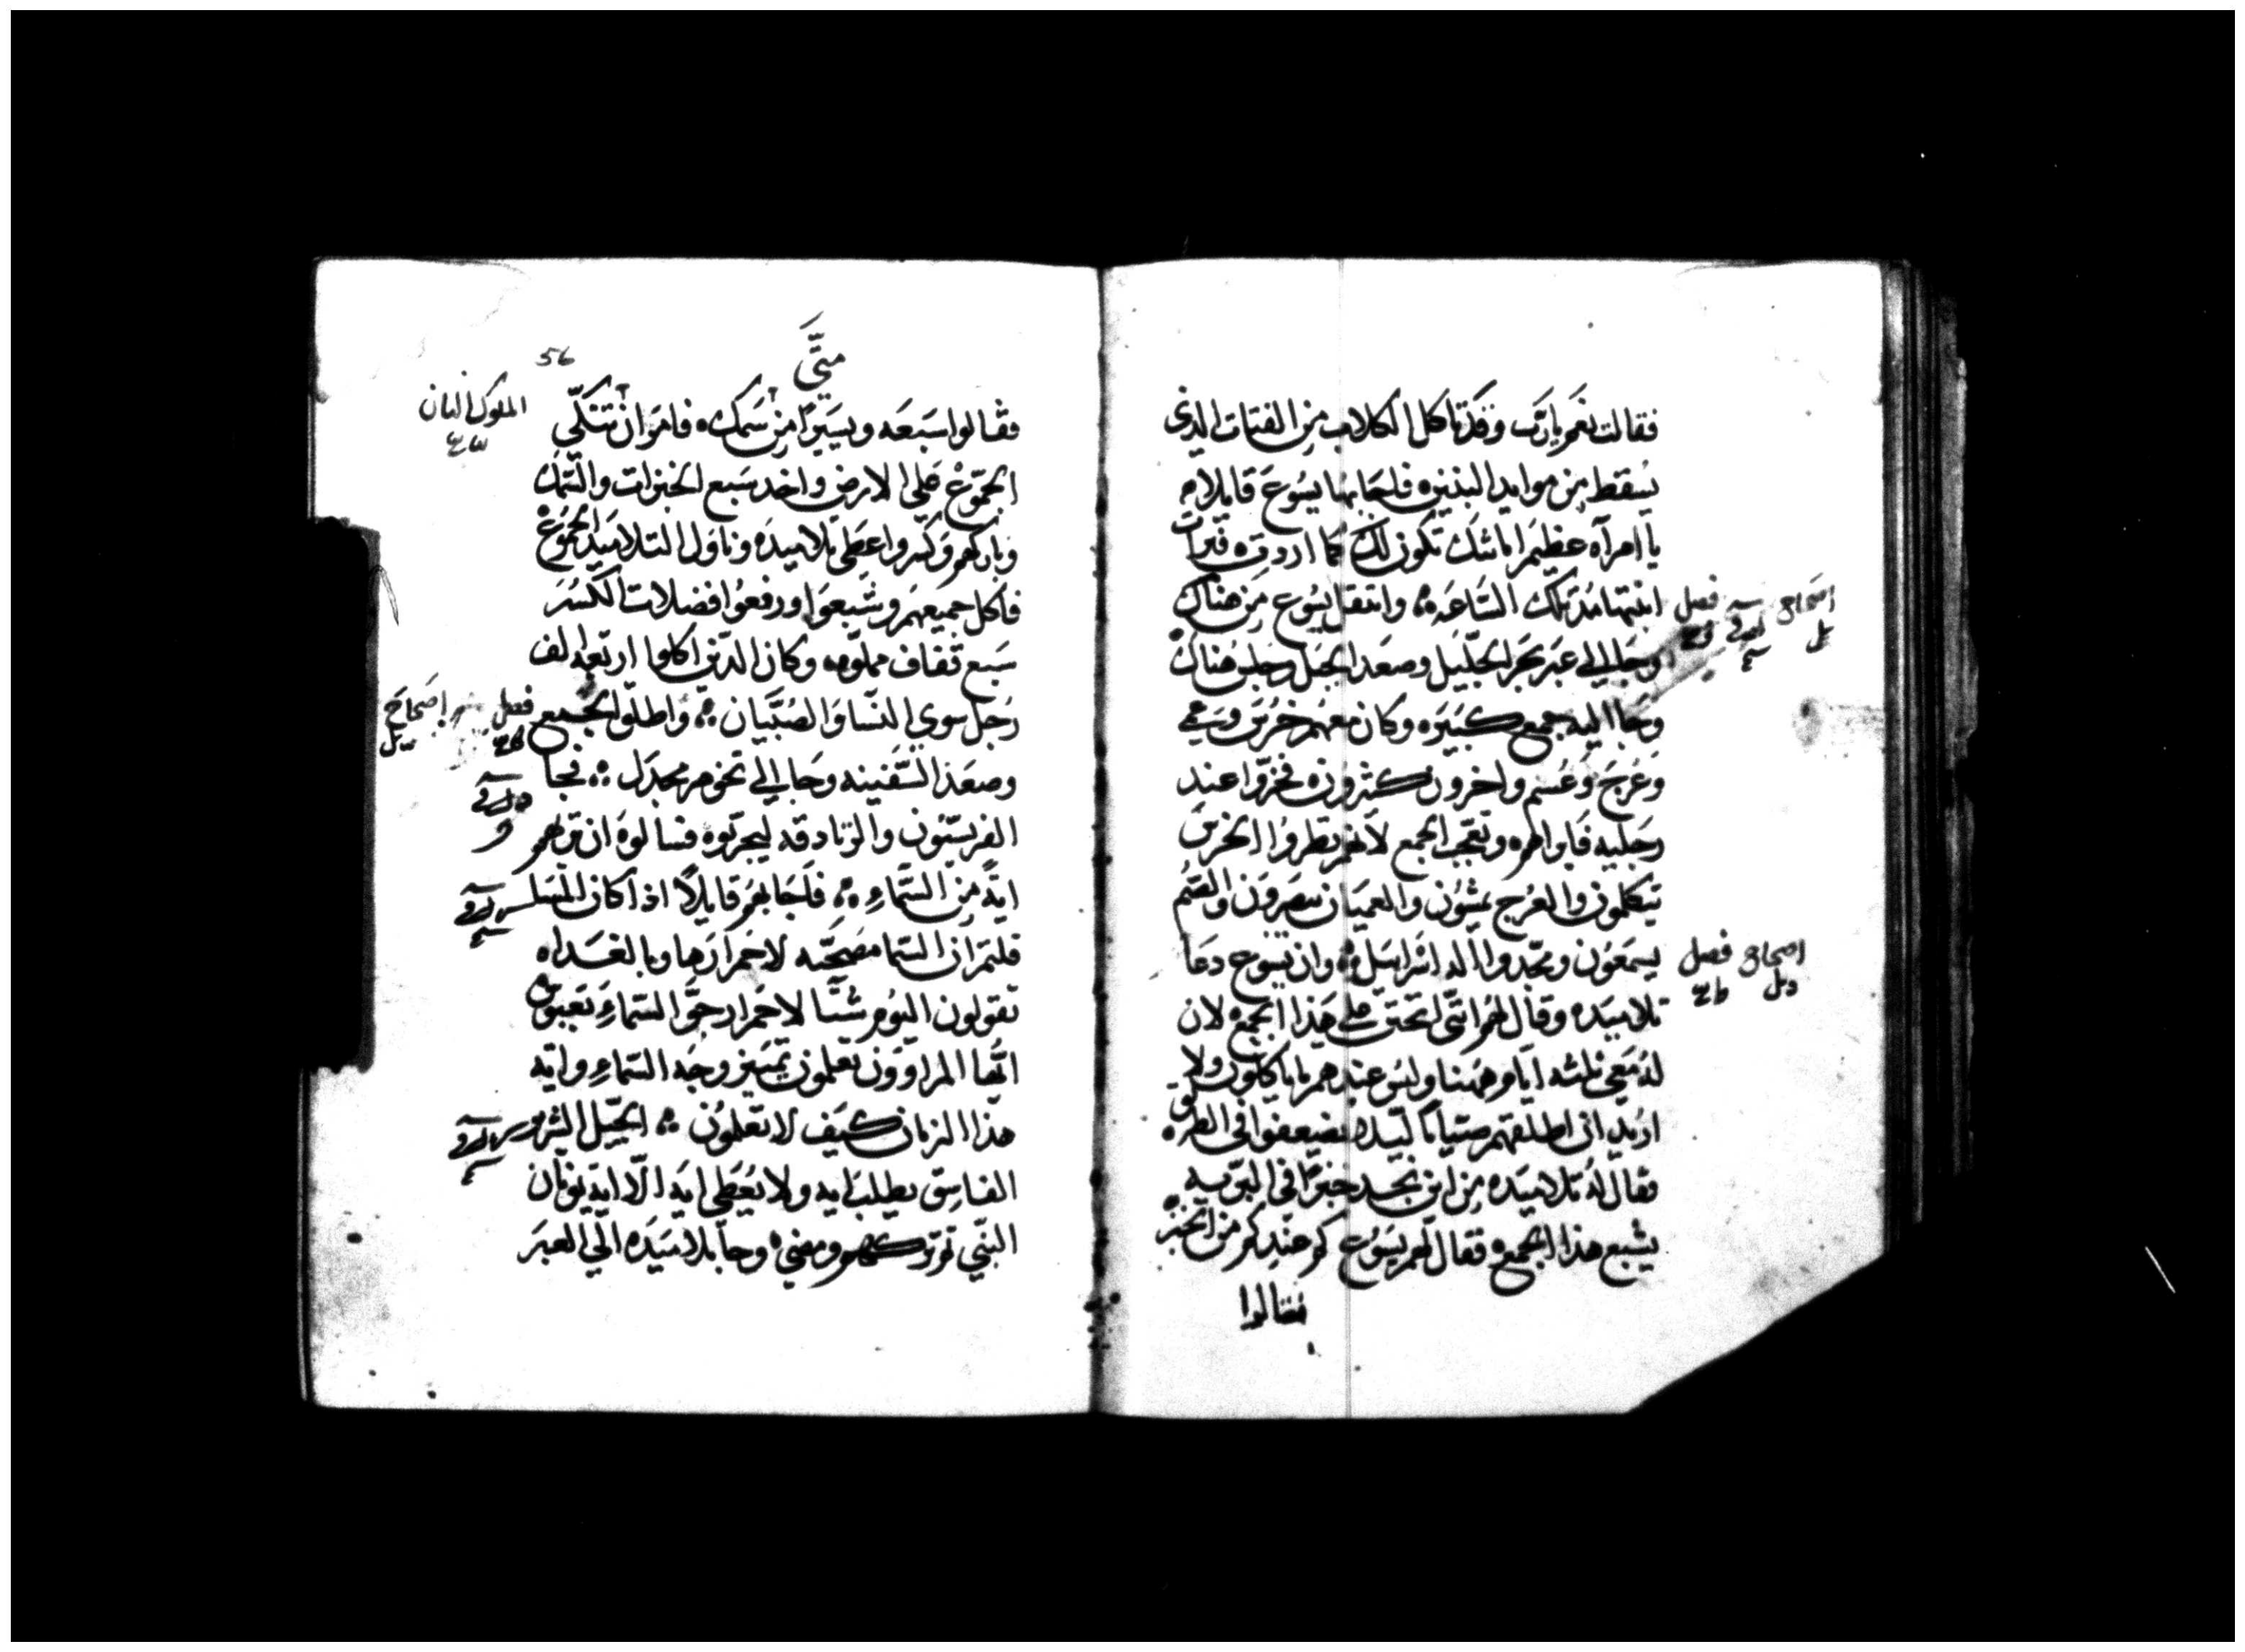 فقالت نعم يارب وقد تاكل الكلاب من الفتات الدي
يسقط من موايد البنين فاجابها يسوع قايلا
يا امرآه عظيم امانتك تكون لك كما اردت فبرات
ابنتها مند تلك الساعه وانتقل يسوع من هناك
وجا الي عبر بحر الجليل وصعد الجبل وجلس هناك
وجا اليه جمع كبيره وكان معهم خرس وعمي
وعرج وعسم واخرون كثرون فخروا عند
رجليه فابراهم وتعجب الجمع لانهم نظروا الخرس
يتكلمون والعرج يمشون والعميان يبصرون والصم
يسمعون ومجدوا اله اسراييل وان يسوع دعا
تلاميده وقال لهم انني اتحنن علي هذا الجمع لان
له معي ثلثه ايام ههنا وليس عندهم ما ياكلون ولا
اريد ان اطلقهم صياما ليلا يضيعفوا في الطريق
فقال له تلاميده من اين نجد خبزا في البريه
يشبع هذا الجمع فقال لهم يسوع كم عندكم من الخبز
فقالوا
اصحاح فصل
اصحاح فصل
متي
56
فقالوا سبعه ويسيرا من سمك فامر ان تتكي
الجموع علي الارض واخد سبع الخبزات والسمك
وباركهم وكسر واعطي تلاميده وناول التلاميد الجموع
فاكل جميعهم وشبعوا ورفعوا فضلات الكسر
سبع قفاف مملوه وكان الدين اكلوا اربعه الف
رجل سوي النسا والصبيان واطلق الجميع
وصعد السفينه وجا الي تخوم مجدل فجا
الفريسيون والزنادقه ليجربوه فسالوه ان يريهم
اية من السماء فاجابهم قايلا ادا كان المسا
قلتم ان السما مصحيه لاحمرارها وبالغداه
تقولون اليوم شتا لاحمرار جو السماء بعبوس
ايها المراوون تعلمون تميز وجه السماء وايه
هذا الزمان كيف لا تعلمون الجيل الشرير
الفاسق يطلب ايه ولا يعطي ايه الا اية يونان
النبي ثم تركهم ومضي وجا تلاميده الي العبر
فصل اصحاح